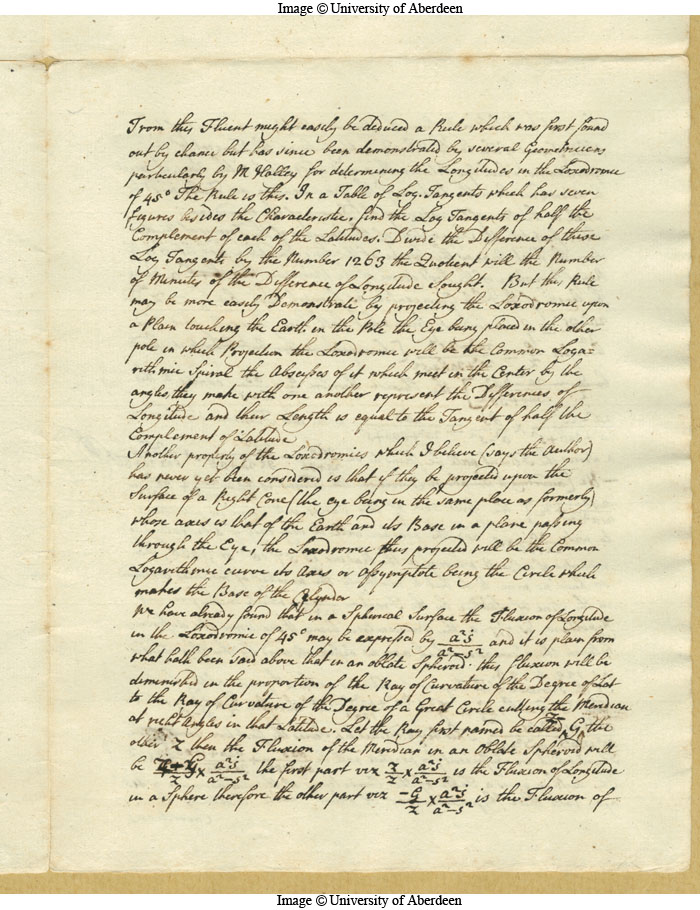 Image © University of Aberdeen
From this Fluent might easily be deduced a Rule which was first found
out by chance but has since been demonstrated by several Geometricians
particularly by Mr Halley for determining the Longitudes in the Loxodromic
of 45° The Rule is this. In a Table of Log. Tangents which has seven
figures besides the Characteristic, find the Log Tangents of half the
Complement of each of the Latitudes. Divide the Difference of these
Log Tangents by the Number 1263 the Quotient will the Number
of Minutes of the Difference of Longitude sought. But this Rule
may be more easily Demonstrate by projecting the Loxodromic upon
a Plain touching the Earth in the Pole the Eye being placed in the other
pole in which Projection the Loxodromic will be the Common Loga=
rithmic Spiral the Abscisses of it which meet in the Center by the
angles they make with one another represent the Differences of
Longitude and their Length is equal to the Tangent of half the
Complement of Latitude
Another property of the Loxodromics which I believe (says the Author)
has never yet been considered is that if they be projected upon the
Surface of a Right Cone (the eye being in the same place as formerly)
whose axis is that of the Earth and its Base in a plane passing
through the Eye, the Loxodromic thus projected will be the Common
Logarithmic curve its Axes or Assymptote being the Circle which
makes the Base of the Cylinder
We have already found that in a Spherical Surface the Fluxion of Longitude
in the Loxodromic of 45° may be expressed by a²ṡ/a²-s² and it is plain from
what hath been said above that in an oblate Spheroid this fluxion will be
diminished in the proportion of the Ray of Curvature of the Degree of Lat
to the Ray of Curvature of the Degree of a Great Circle cutting the Meridian
at right Angles in that Latitude. Let the Ray first named be called G, the
other Z then the Fluxion of the Meridian in an Oblate Spheroid will
be × a²ṡ/a²-s² the first part viz Z/Z × a²ṡ/a²-s² is the Fluxion of Longitude
in a Sphere therefore the other part viz -G/Z × a²ṡ/a²-s² is the Fluxion of
Image © University of Aberdeen